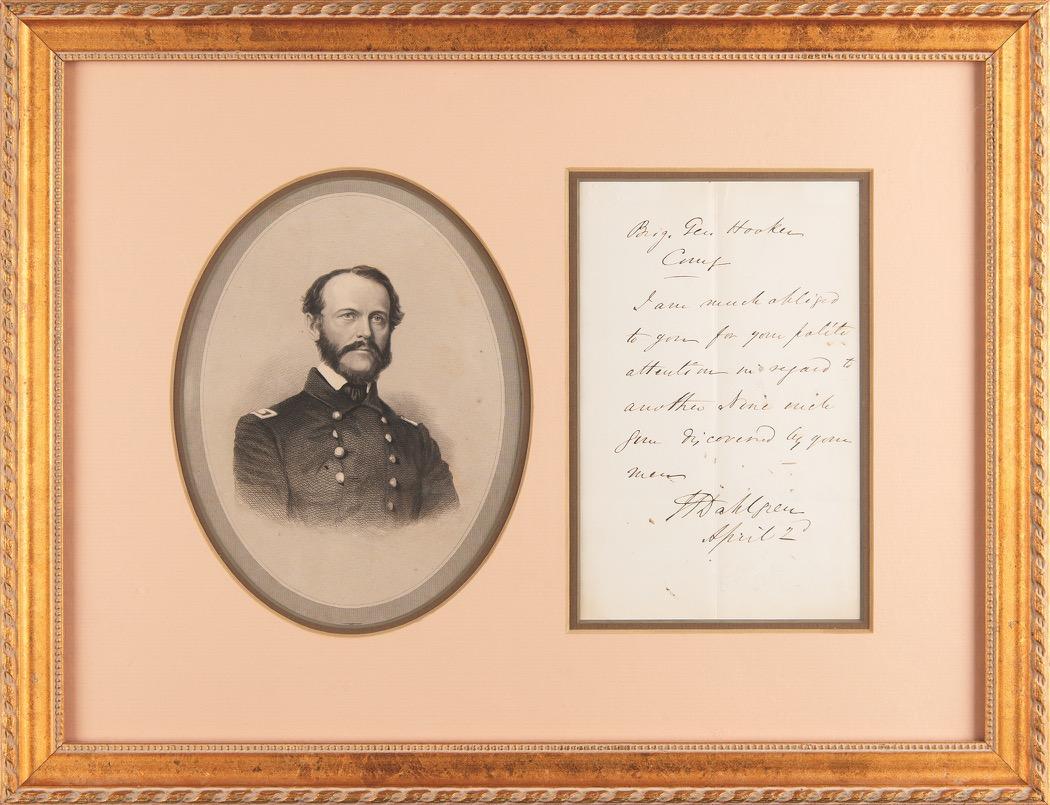 Brig. Gen. Hooker
Comg
I am much obliged
to you for your polite
attention in regard to
another Nine inch
gun discovered by your
men
JADahlgren
April 2d